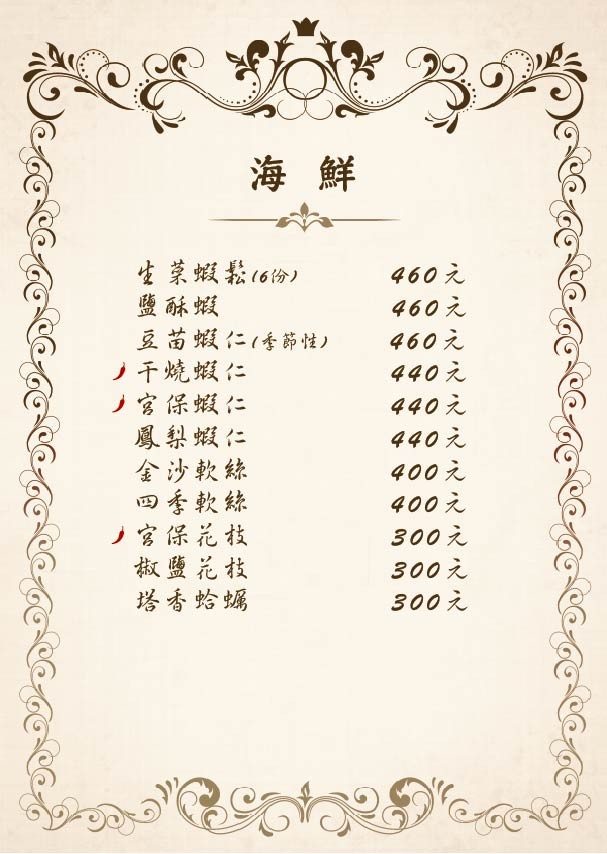 海鮮
生菜蝦鬆(6份) 460元
鹽酥蝦 460元
豆苗蝦仁(季節性) 460元
干燒蝦仁 440元
宮保蝦仁 440元
鳳梨蝦仁 440元
金沙軟絲 400元
四季軟絲 400元
宮保花枝 300元
椒鹽花枝 300元
塔香蛤蠣 300元